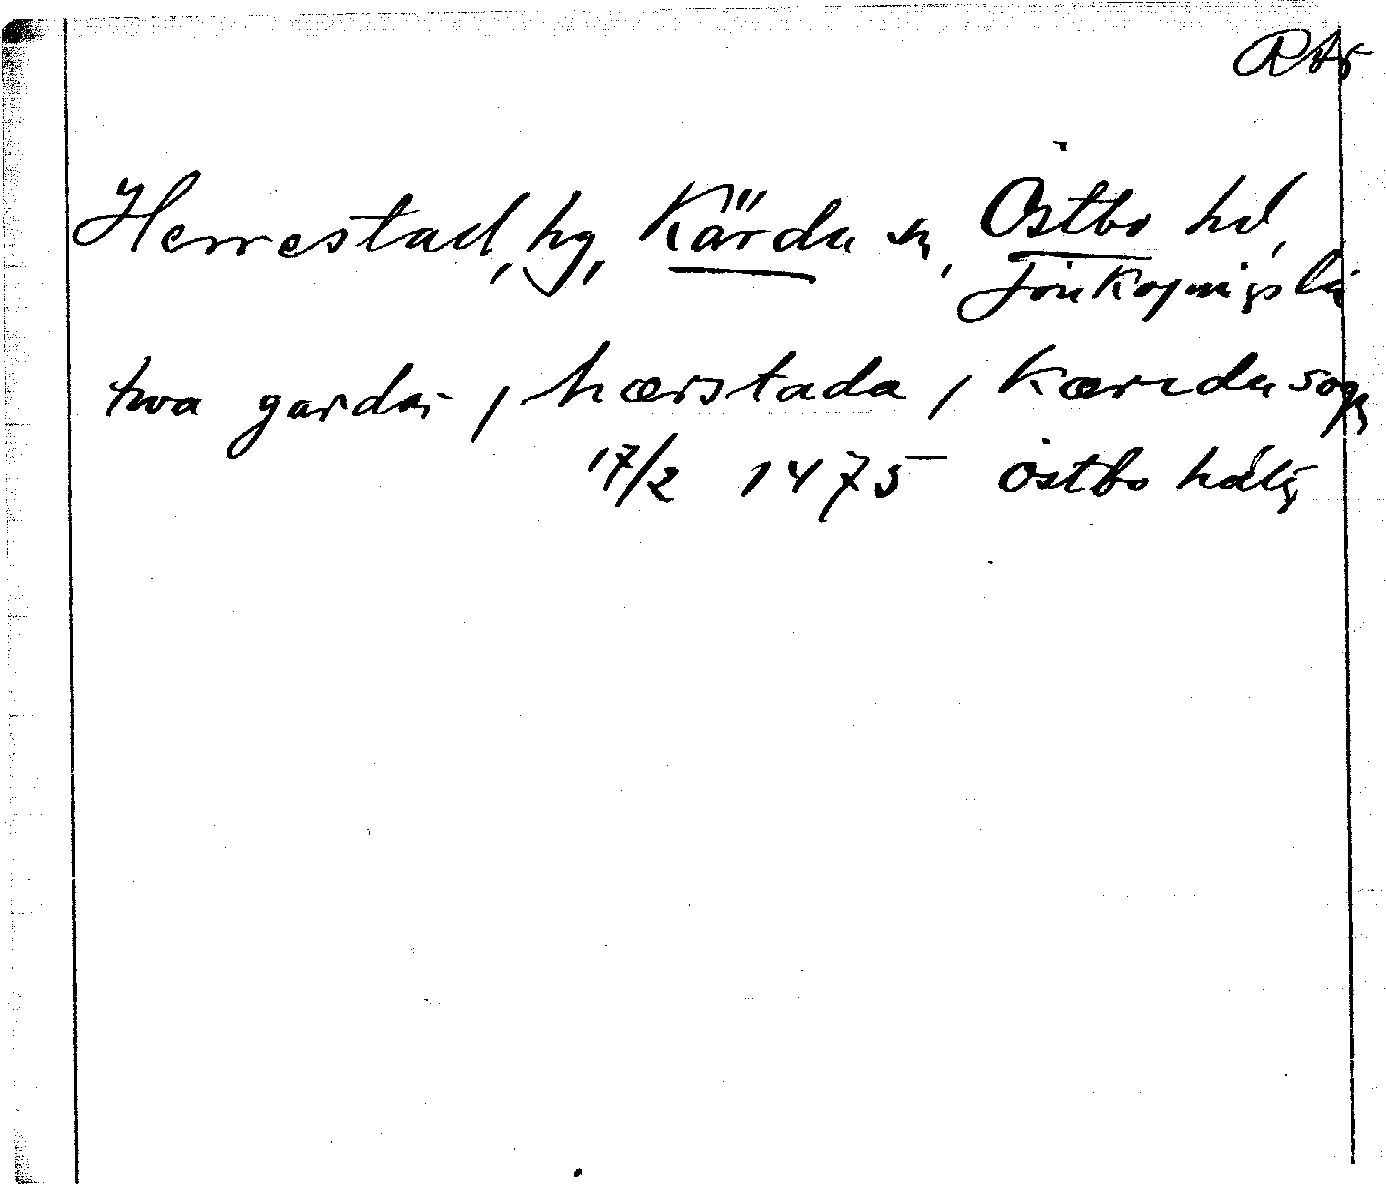 RAp
Herrestad, hg, Kärda sn, Östbo hd,
Jönköpings län
twa garda i hærstada i Kærrda sogn
17/2 1475 östbo häladh